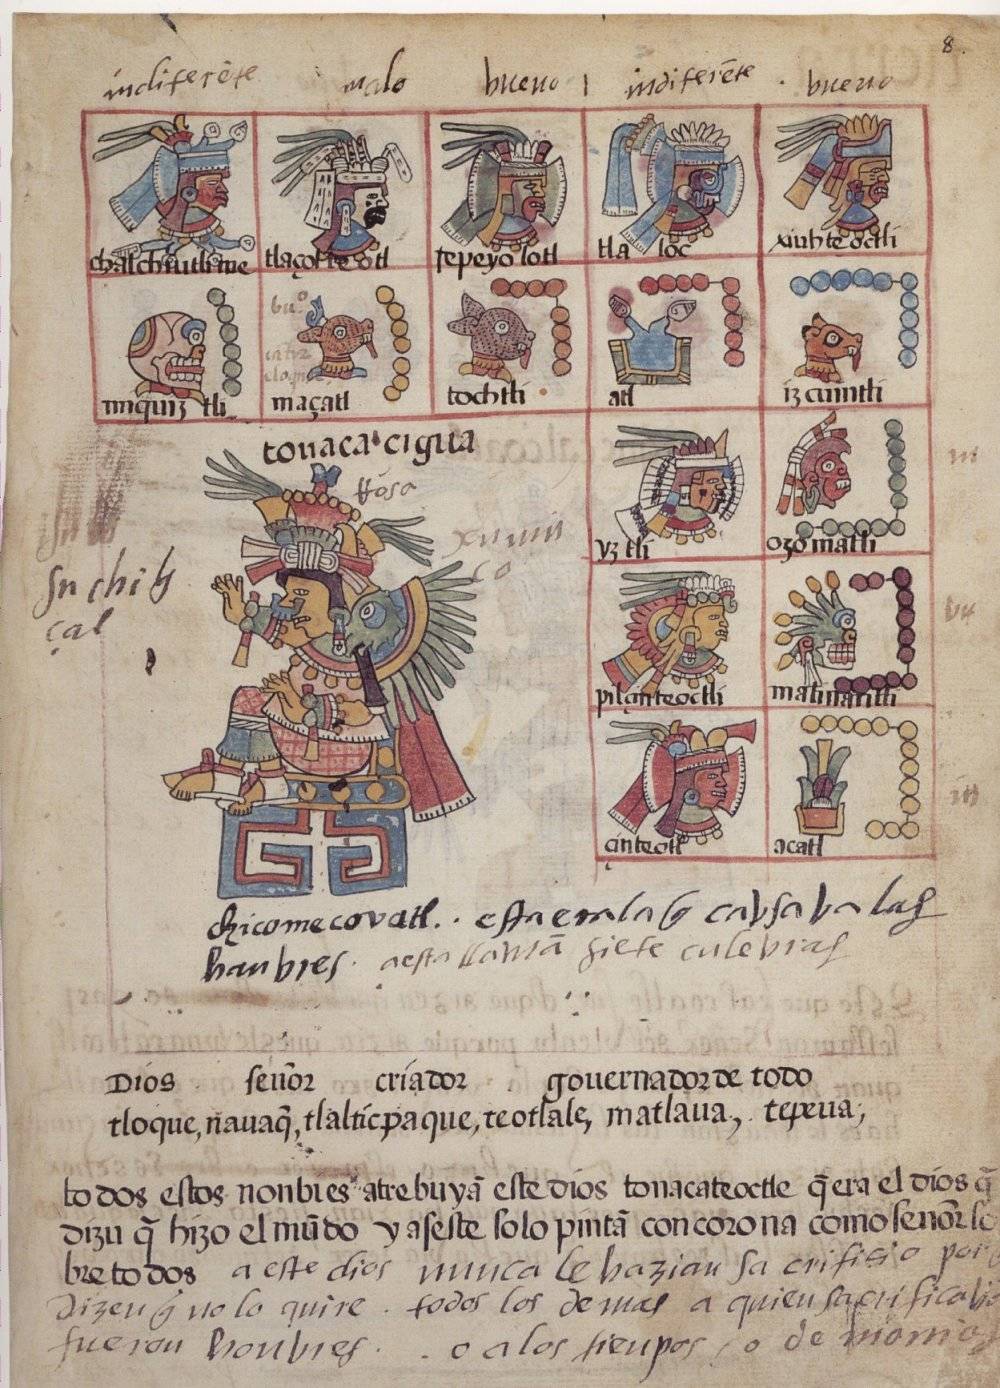 8.
indiferēte malo bueno indiferēte bueno
chalchiutli
tlaçolteotl
tepeyolotl
tlaloc
xiuhteoctli
miquiztli
bu°
maçatl
tochtli
atl
izcuintli
tonacacigua
tosa
vztli
ozomatli
Suchiq̄
çal
pilçinteoctli
malinalli
çinteotl
acatl
chicomecovatl. esta era la q̄ cabsaba las
hanbres. a esta llamā siete culebras
Dios señor criador gouernador de todo
tloque, navaq̄, tlalticpaque, teotlale, matlaua, tepeua,
todos estos nonbres atrebuyā este dios tonacateoctle q̄ era el dios q̄
dizē q̄ hizo el mūdo y a seste solo pintā con corona como señor
bre todos a este dios nunca le hazian sacrifisio
dizen q̄ no lo quire. todos los demas a quien
fueron honbres. o a los tienpos, o de